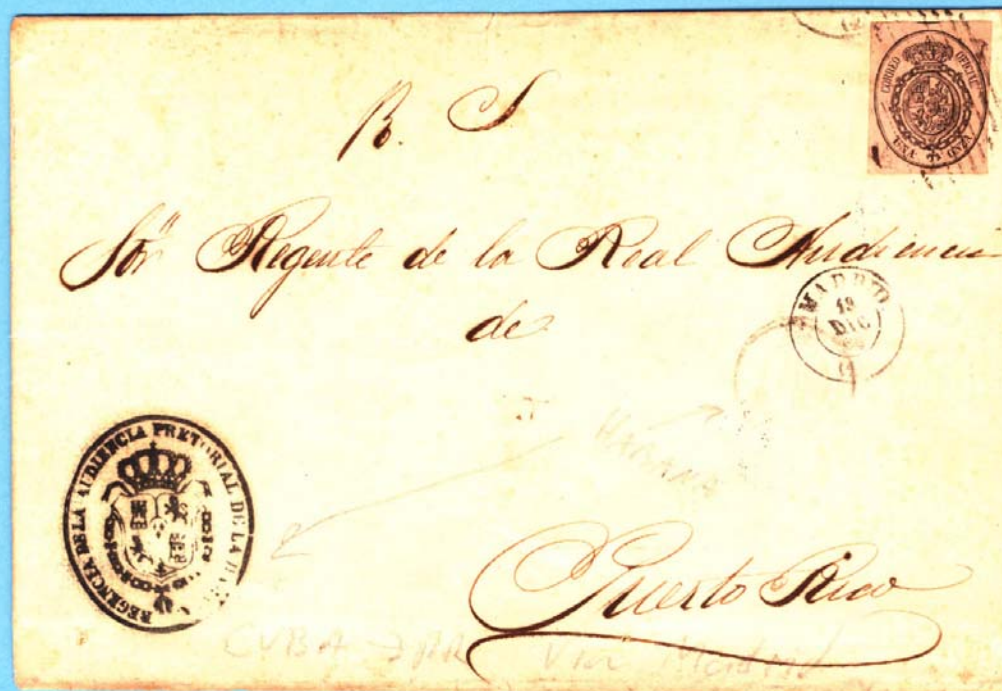 CORREO OFICIAL
UNA ONZA
R. S
Sor. Regente de la Real Audiencia
MADRID
19
DIC
de
HABANA
REGENCIA DE LA AUDIENCIA PRETORIAL DE LA
Puerto Rico
CUBA → PR Via Madrid